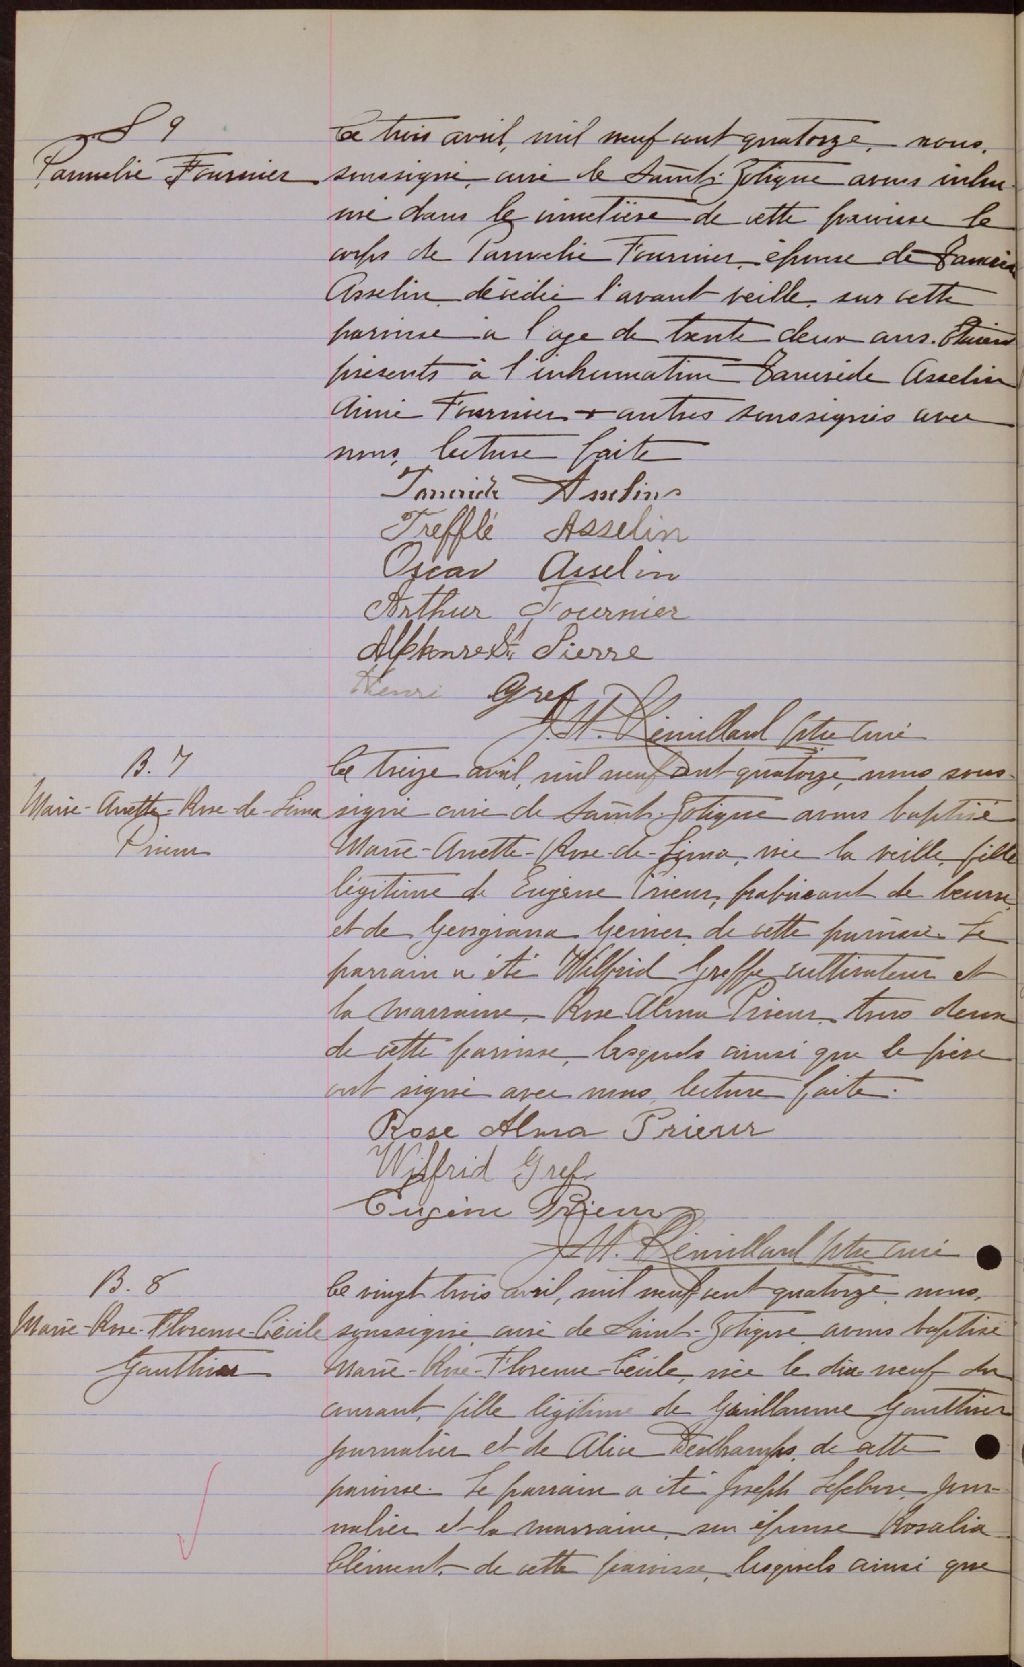 S 9
Parmelie Fournier
Le trois avril, mil neuf cent quatorze, nous,
soussigné, curé de Saint-Zotique avons inhu-
mé dans le cimetière de cette paroisse le
corps de Parmelie Fournier, épouse de
Asselin, décédée l'avant veille, sur cette
paroisse à l'age de trente deux ans. Etaient
présents à l'inhumation Tancrède Asselin
Aimé Fournier + autres soussignés avec
nous, lecture faite
Tancride Asselins
Trefflé Asselin
Oscar Asselin
Arthur Fournier
Alphonse St Pierre
Henri Gref
J. M. Rémillard ptre curé
B. 7
Marie-Anette-Rose-de-Lima
Prieur
Le treize avril, mil neuf cent quatorze, nous sous-
signé curé de Saint-Zotique avons baptisé
Marie-Anette-Rose-de-Lima, née la veille, fille
légitime de Eugène Prieur, fabricant de beurre,
et de Georgiana Génier, de cette paroisse. Le
parrain a été Wilfrid Greffe cultivateur et
la marraine, Rose Alma Prieur, tous deux
de cette paroisse, lesquels ainsi que le père
ont signé avec nous, lecture faite.
Rose Alma Prieur
Wilfrid Gref
Eugène Prieur
J. M. Rémillard ptre curé
B. 8
Marie-Rose-Florence-Cécile
Gauthier
Le vingt trois avril, mil neuf cent quatorze, nous,
soussigné curé de Saint-Zotique avons baptisé
Marie-Rose-Florence-Cécile, née le dix neuf du
courant, fille légitime de Guillaume Gauthier
journalier et de Alice Deschamps, de cette
paroisse. Le parrain a été Joseph Lefebvre, jour-
nalier et la marraine, son épouse Rosalia
Clément, de cette paroisse, lesquels ainsi que